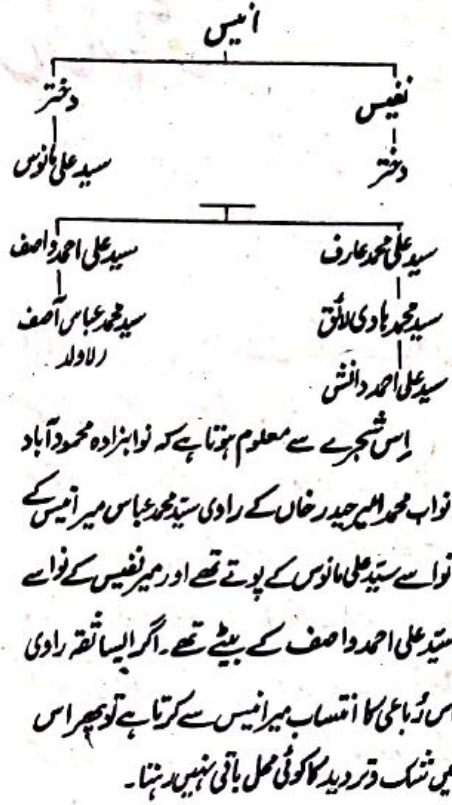 انیس
نفیس دختر
دختر سید علی مانوس
سید علی محمد عارف سید علی احمد واصف
سید محمد ہادی لائق سید محمد عباس آصف
(لاولد
سید علی احمد دانش
اِس شجرے سے معلوم ہوتا ہے کہ نوابزادہ محمود آباد
نواب محمد امیر حیدر خاں کے راوی سیّد محمد عباس میر انیس کے
نواسے سیّد علی مانوس کے پوتے تھے اور میر نفیس کے نواسے
سیّد علی احمد واصف کے بیٹے تھے۔ اگر ایسا ثقہ راوی
اس رُباعی کا انتساب میر انیس سے کرتا ہے تو پھر اس
میں شک و تردید کا کوئی محل باقی نہیں رہتا۔